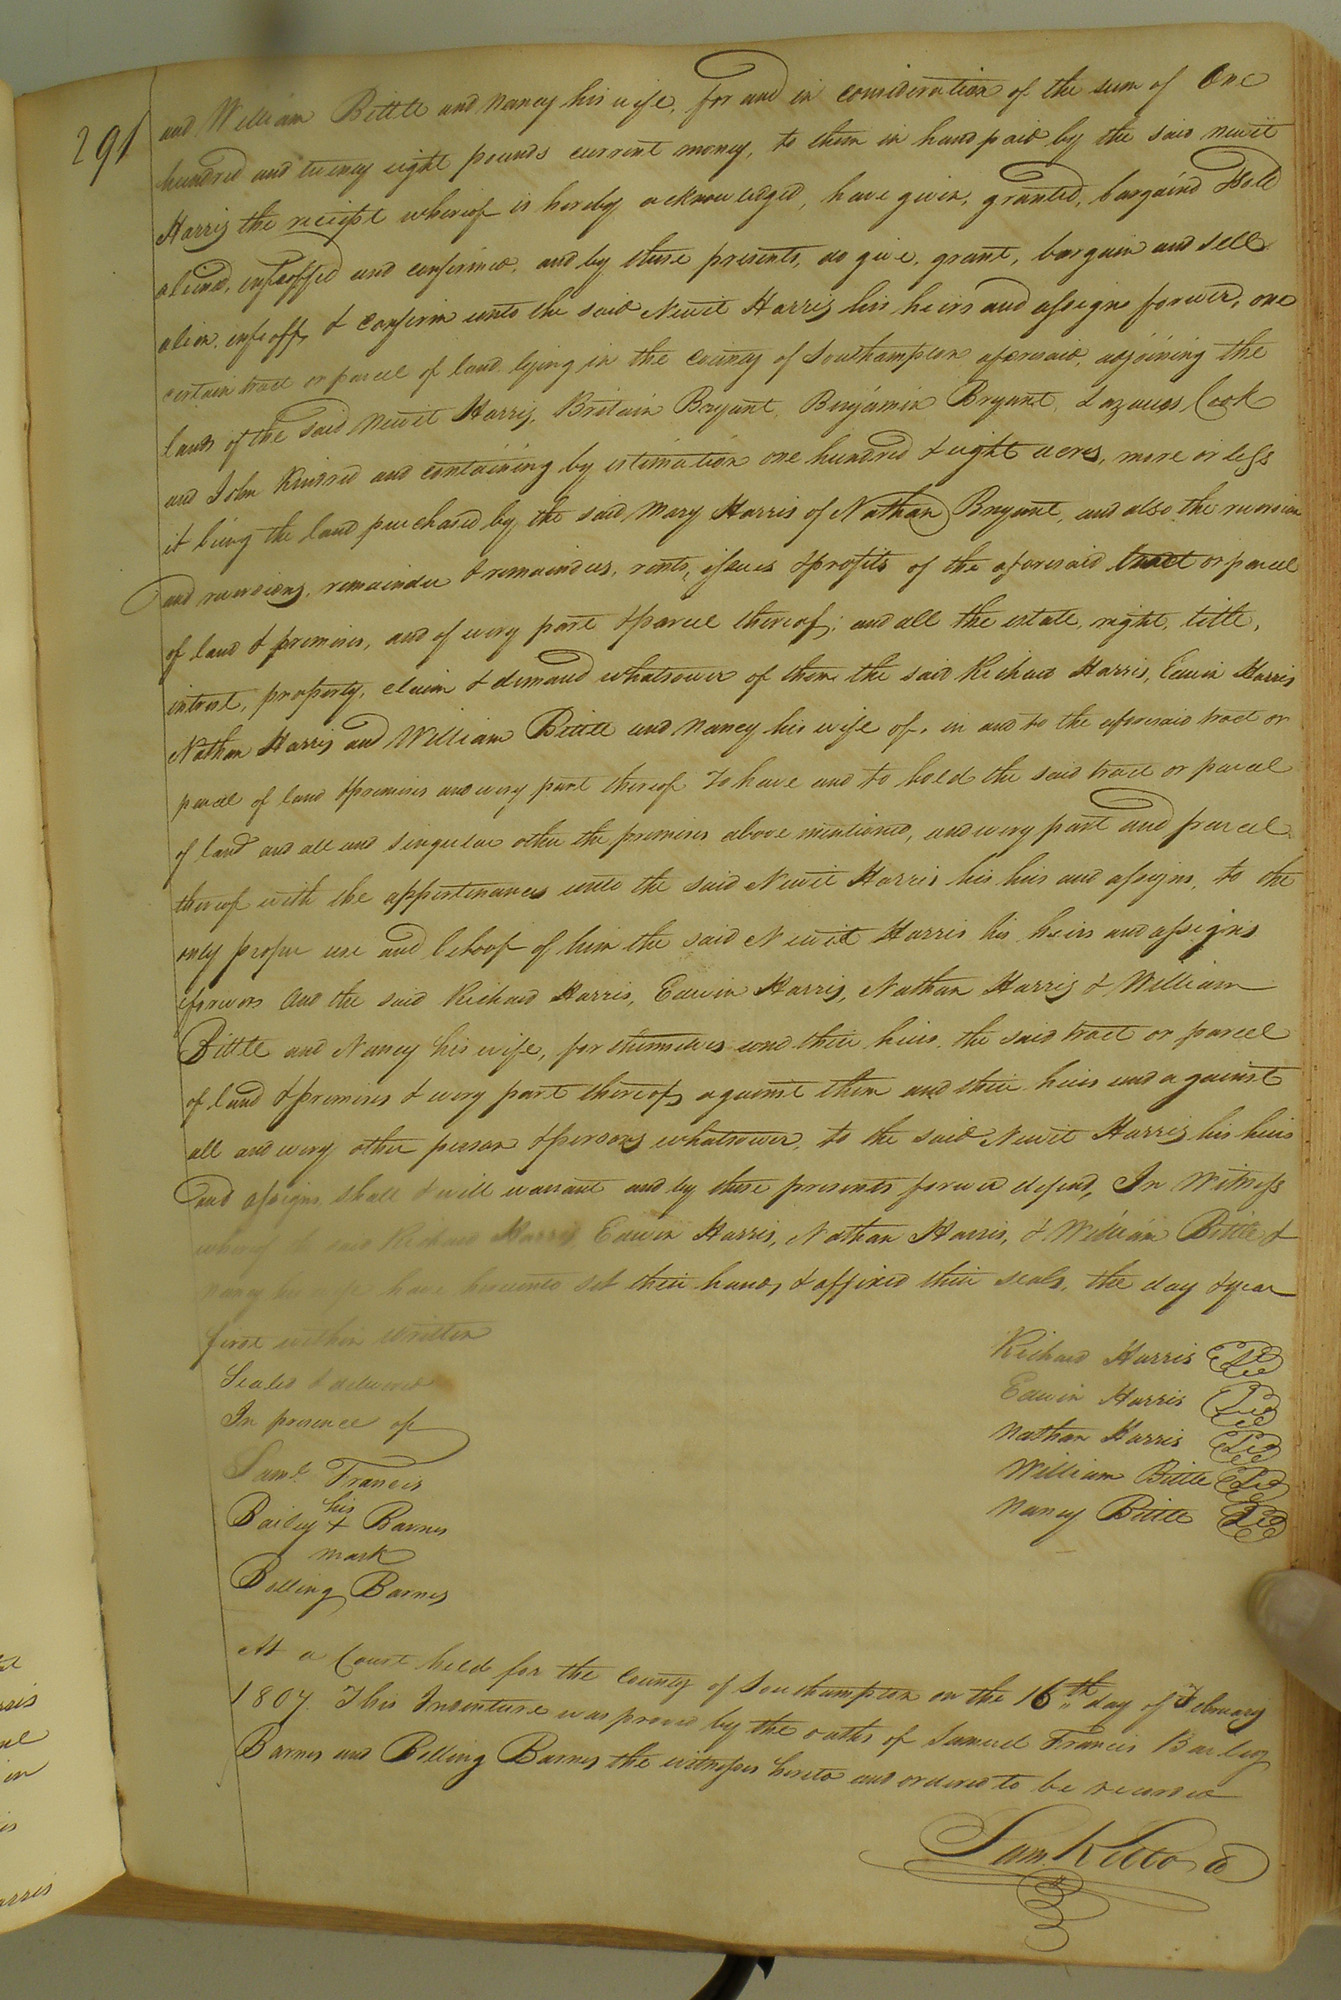 291
and William Bittle and Nancy his wife, for and in consideration of the sum of One
hundred and twenty eight pounds current money, to them in hand paid by the said Newit
Harris the receipt whereof is hereby acknowledged, have given, granted, bargaind & sold
aliend, infeoffed and confirmed, and by these presents, do give, grant, bargain and sell
alien, infeoff, & confirm unto the said Newit Harris his heirs and assigns forever, one
certain tract or parcel of land lying in the County of Southampton aforesaid, adjoining the
lands of the said Newit Harris, Britain Bryant, Benjamin Bryant, Lazarus Cook
and John Kindred and containing by estimation one hundred & eight acres, more or less
it being the land purchased by the said Mary Harris of Nathan Bryant, and also the reversion
and reversions, remainder & remainders, rents, issues & profits of the aforesaid tract or parcel
of land & premises, and of every part & parcel thereof; and all the estate, right, title,
intrest, property, claim & demand whatsoever of them the said Richard Harris, Edwin Harris
Nathan Harris and William Bittle and Nancy his wife of, in and to the aforesaid tract or
parcel of land & premises and every part thereof To have and to hold the said tract or parcel
of land and all and singular other the premises above mentioned, and every part and parcel
thereof with the appertinances unto the said Newit Harris his heirs and assigns, to the
only proper use and behoof of him the said Newit Harris his heirs and assigns
forever And the said Richard Harris, Edwin Harris, Nathan Harris & William
Bittle and Nancy his wife, for themselves and their heirs the said tract or parcel
of land & premises & every part thereof, against them and their heirs and against
all and every other person & persons whatsoever, to the said Newit Harris his heirs
and assigns shall & will warrant and by these presents forever defend, In Witness
whereof the said Richard Harris Edwin Harris, Nathan Harris, & William Bittle &
Nancy his wife have hereunto set their hands & affixed their seals, the day & year
first within written
Sealed & delivered
In presence of
Saml. Francis
his
Bailey + Barnes
mark
Bolling Barnes
Richard Harris
Edwin Harris
Nathan Harris
William Bittle
Nancy Bittle
At a Court held for the County of Southampton on the 16th day of February
1807. This Indenture was proved by the oaths of Samuel Francis Bailey
Barnes and Bolling Barnes the witnesses hereto and ordered to be recorded
Sam. Kello